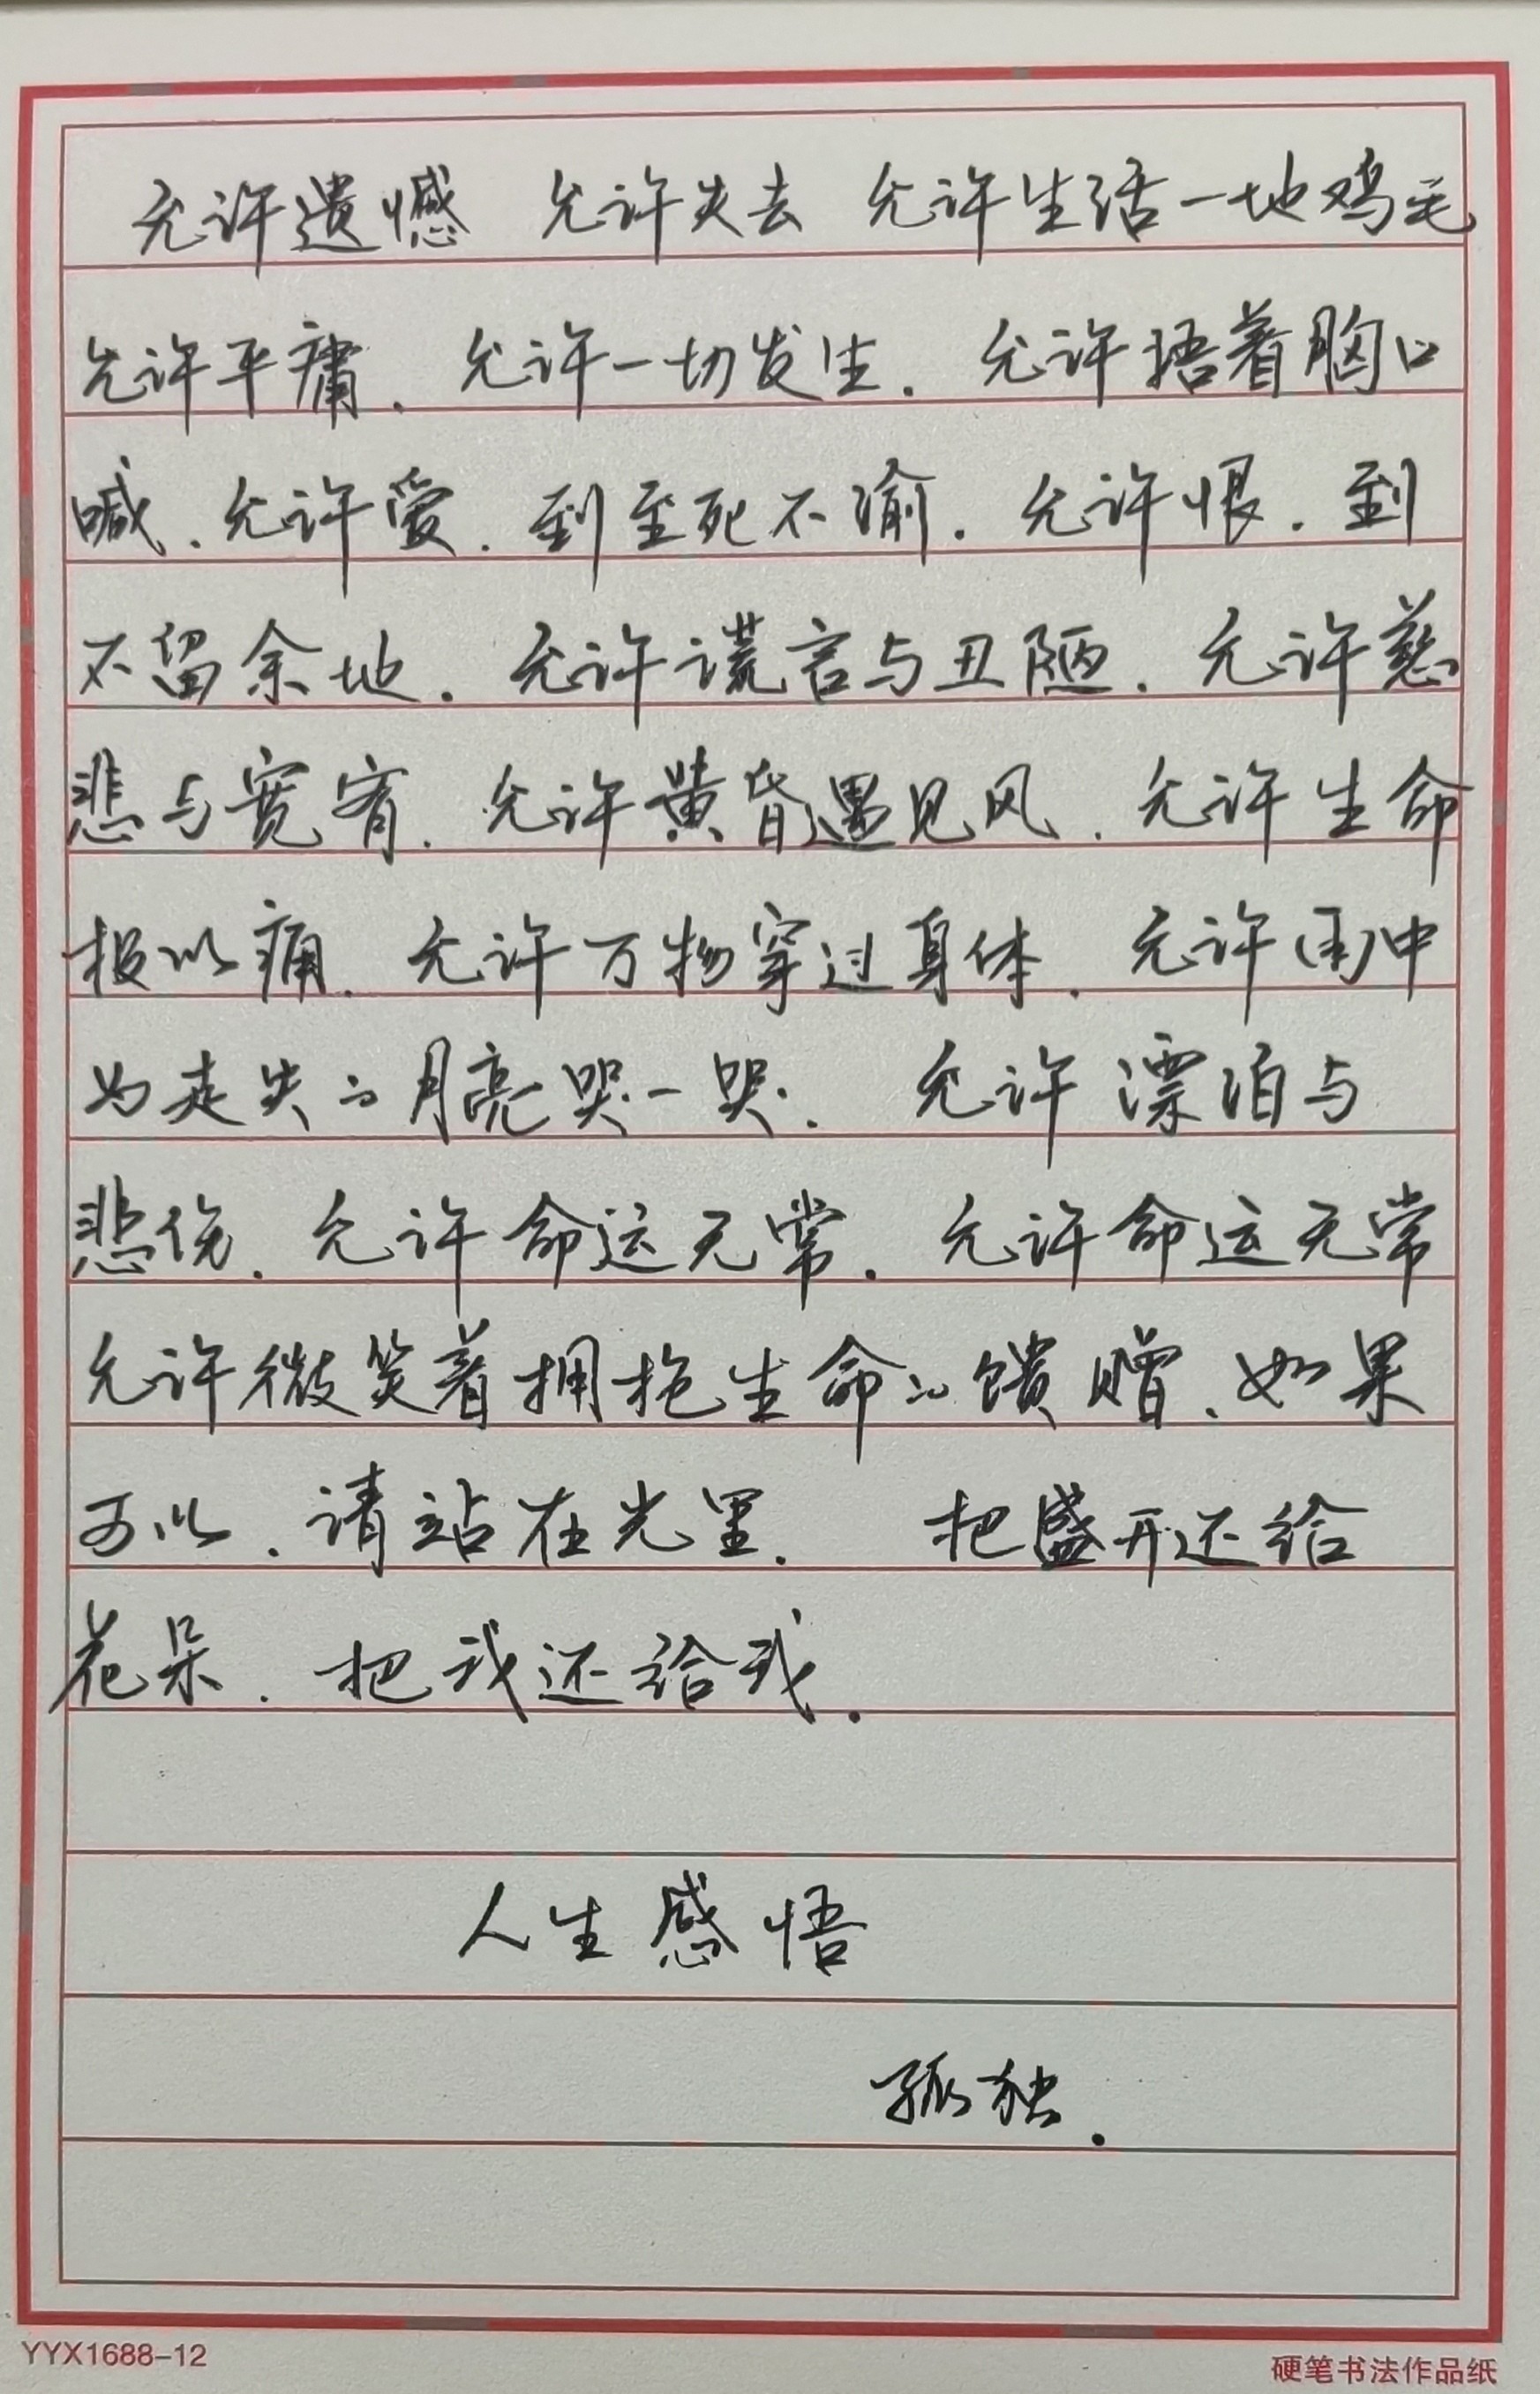 允许遗憾 允许失去 允许生活一地鸡毛
允许平庸.允许一切发生.允许捂着胸口
喊.允许爱.到至死不渝.允许恨.到
不留余地.允许谎言与丑陋.允许慈
悲与宽宥.允许黄昏遇见风.允许生命
报以痛.允许万物穿过身体.允许雨中
为走失的月亮哭一哭.允许漂泊与
悲伤.允许命运无常.允许命运无常
允许微笑着拥抱生命的馈赠.如果
可以.请站在光里.把盛开还给
花朵.把我还给我.
人生感悟
孤独.
YYX1688-12
硬笔书法作品纸